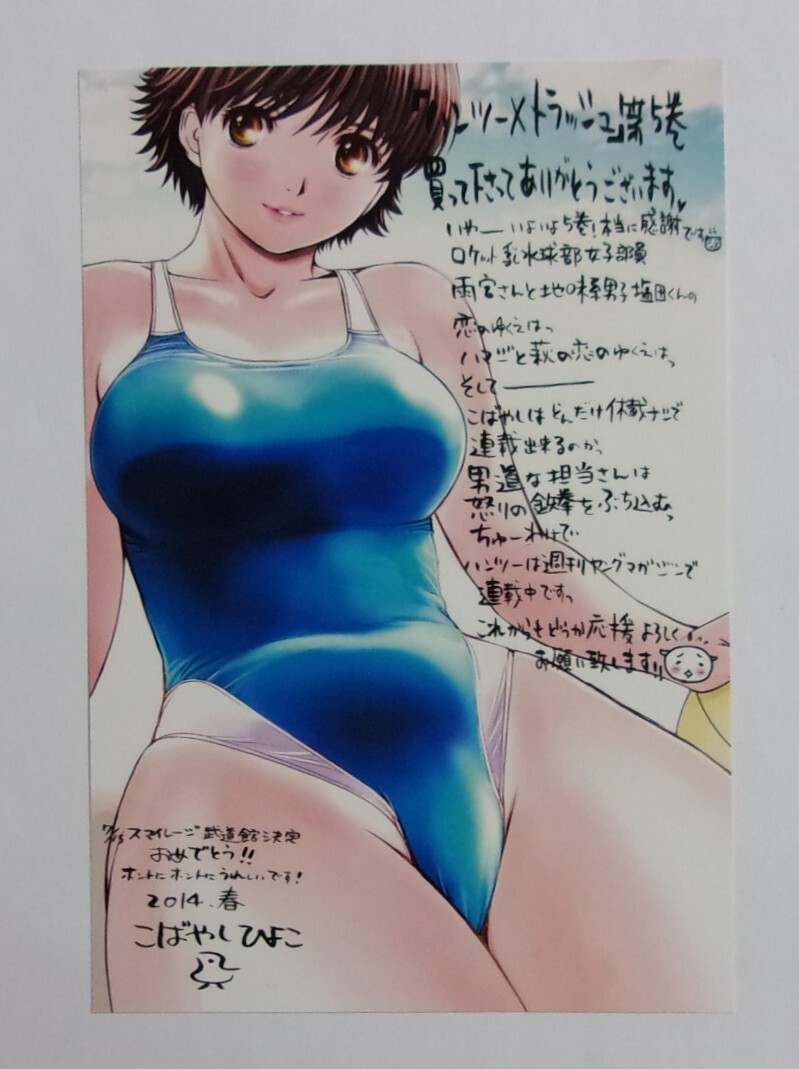 「ハンツー×トラッシュ」第5巻
買って下さってありがとうございます♥
いやーいよいよ5巻!本当に感謝です
ロケット乳水球部女子部員
雨宮さんと地味系男子塩田くんの
恋のゆくえはっ
ハマジと萩の恋のゆくえはっ
そして――――
こばやしはどんだけ休載ナシで
連載出来るのかっ
男道な担当さんは
怒りの鉄拳をぶち込むっ
ちゅーわけで
ハンツーは週刊ヤングマガジンで
連載中ですっ
これからもどうか応援よろしく
お願い致します!!
7/15スマイレージ武道館決定
おめでとう!!
ホントにホントにうれしいです!
2014.春
こばやしひよこ